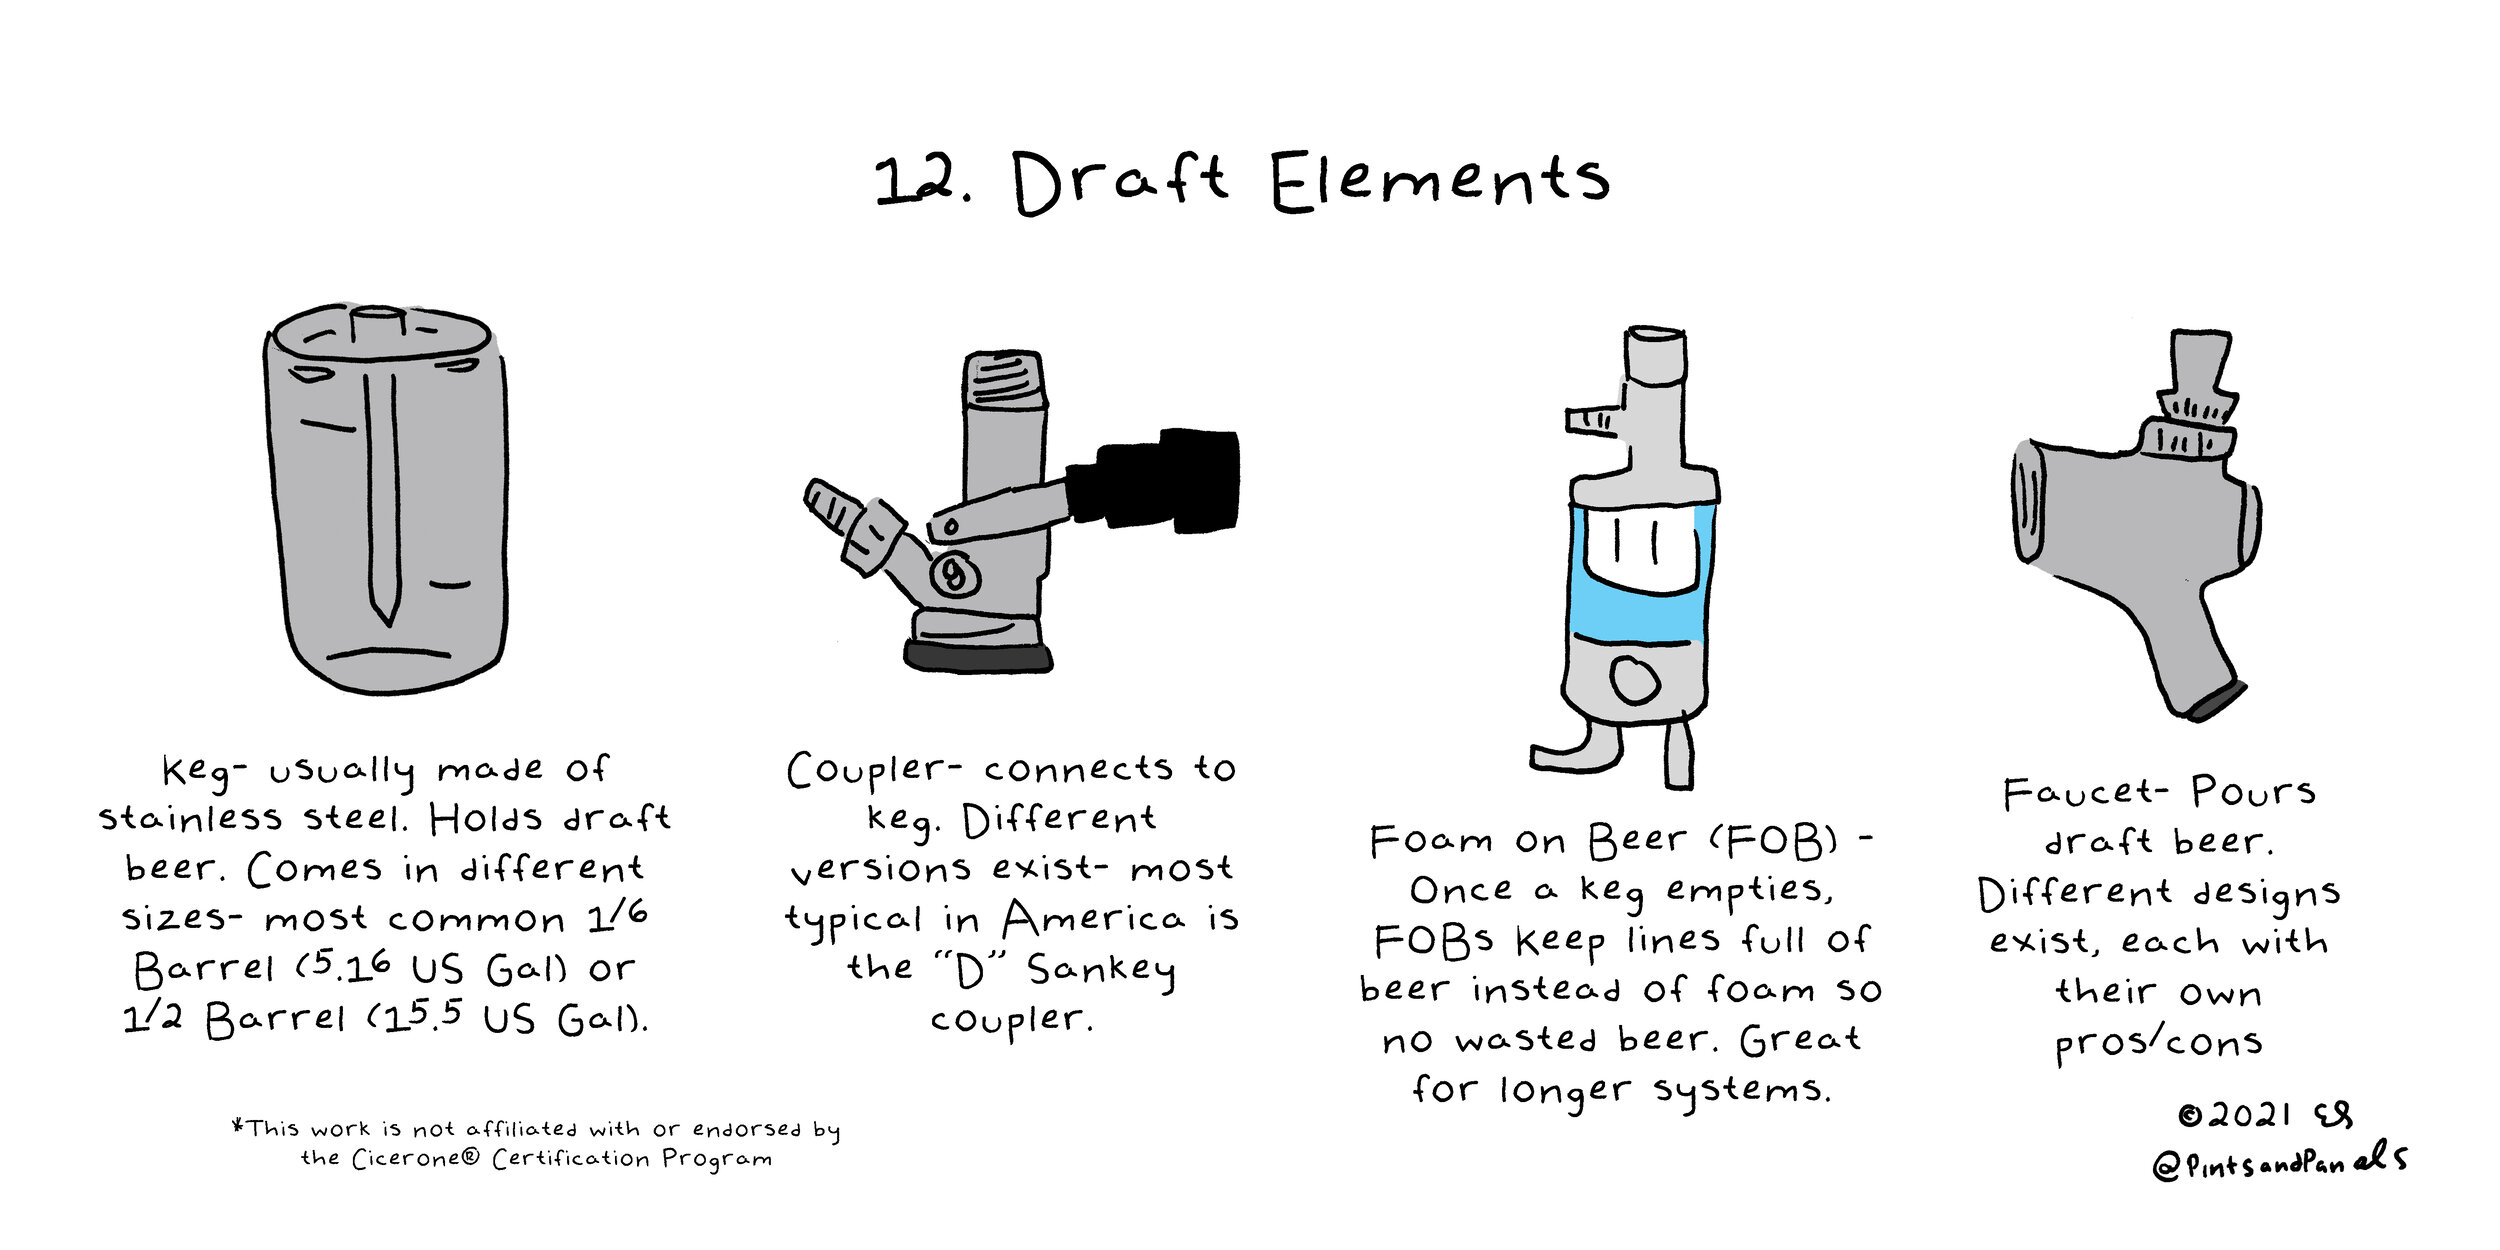 12. Draft Elements
Keg- usually made of
stainless steel. Holds draft
beer. Comes in different
sizes- most common 1/6
Barrel (5.16 US Gal) or
1/2 Barrel (15.5 US Gal).
Coupler- connects to
keg. Different
versions exist- most
typical in America is
the "D" Sankey
coupler.
Foam on Beer (FOB) -
Once a keg empties,
FOBs keep lines full of
beer instead of foam so
no wasted beer. Great
for longer systems.
Faucet- Pours
draft beer.
Different designs
exist, each with
their own
pros/cons
*This work is not affiliated with or endorsed by
the Cicerone® Certification Program
©2021 ES
@PintsandPanels